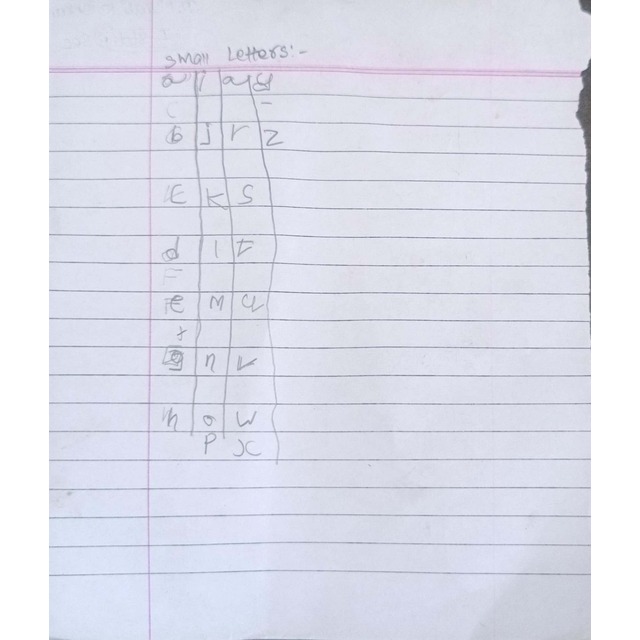 small Letters:-
a i q y
b J r z
K S
d l t
M u
g n v
h o w
P x